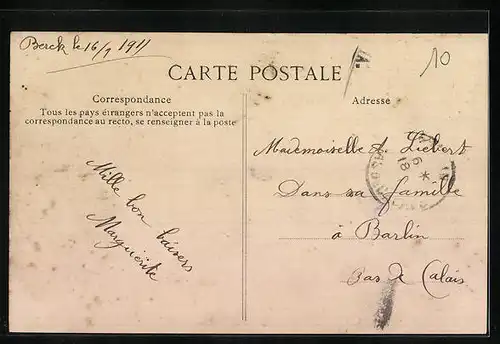 Berck le 16/9 1911
10
CARTE POSTALE
Correspondance
Tous les pays étrangers n'acceptent pas la
correspondance au recto, se renseigner à la poste
Mille bon baisers
Marguerite
Adresse
Mademoiselle A. Liebert
Dans sa famille
à Barlin
Pas de Calais